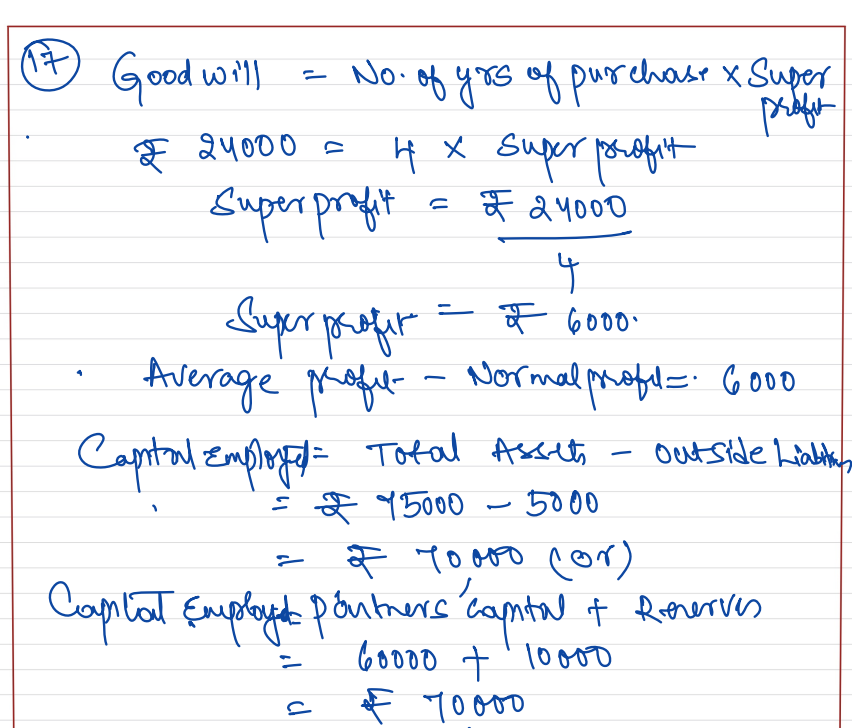 17 Goodwill = No. of yrs of purchase x Super profit
₹ 24000 = 4 x Super profit
Super profit = ₹ 24000
4
Super profit = ₹ 6000.
Average profit - Normal profit = 6000
Capital Employed = Total Assets - Outside Liabilities
= ₹ 75000 - 5000
= ₹ 70000 (or)
Capital Employed = Partners' capital + Reserves
= 60000 + 10000
= ₹ 70000